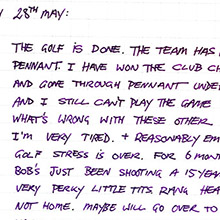 28TH MAY:
THE GOLF IS DONE. THE TEAM HAS
PENNANT. I HAVE WON THE CLUB CH
AND GONE THROUGH PENNANT UNDE
AND I STILL CAN'T PLAY THE GAME
WHAT'S WRONG WITH THESE OTHER
I'M VERY TIRED. + REASONABLY EM
GOLF STRESS IS OVER. FOR 6 MON
BOB'S JUST BEEN SHOOTING A 15 YEAR
VERY PERKY LITTLE TITS, RANG HEA
NOT HOME. MAYBE WILL GO OVER TO